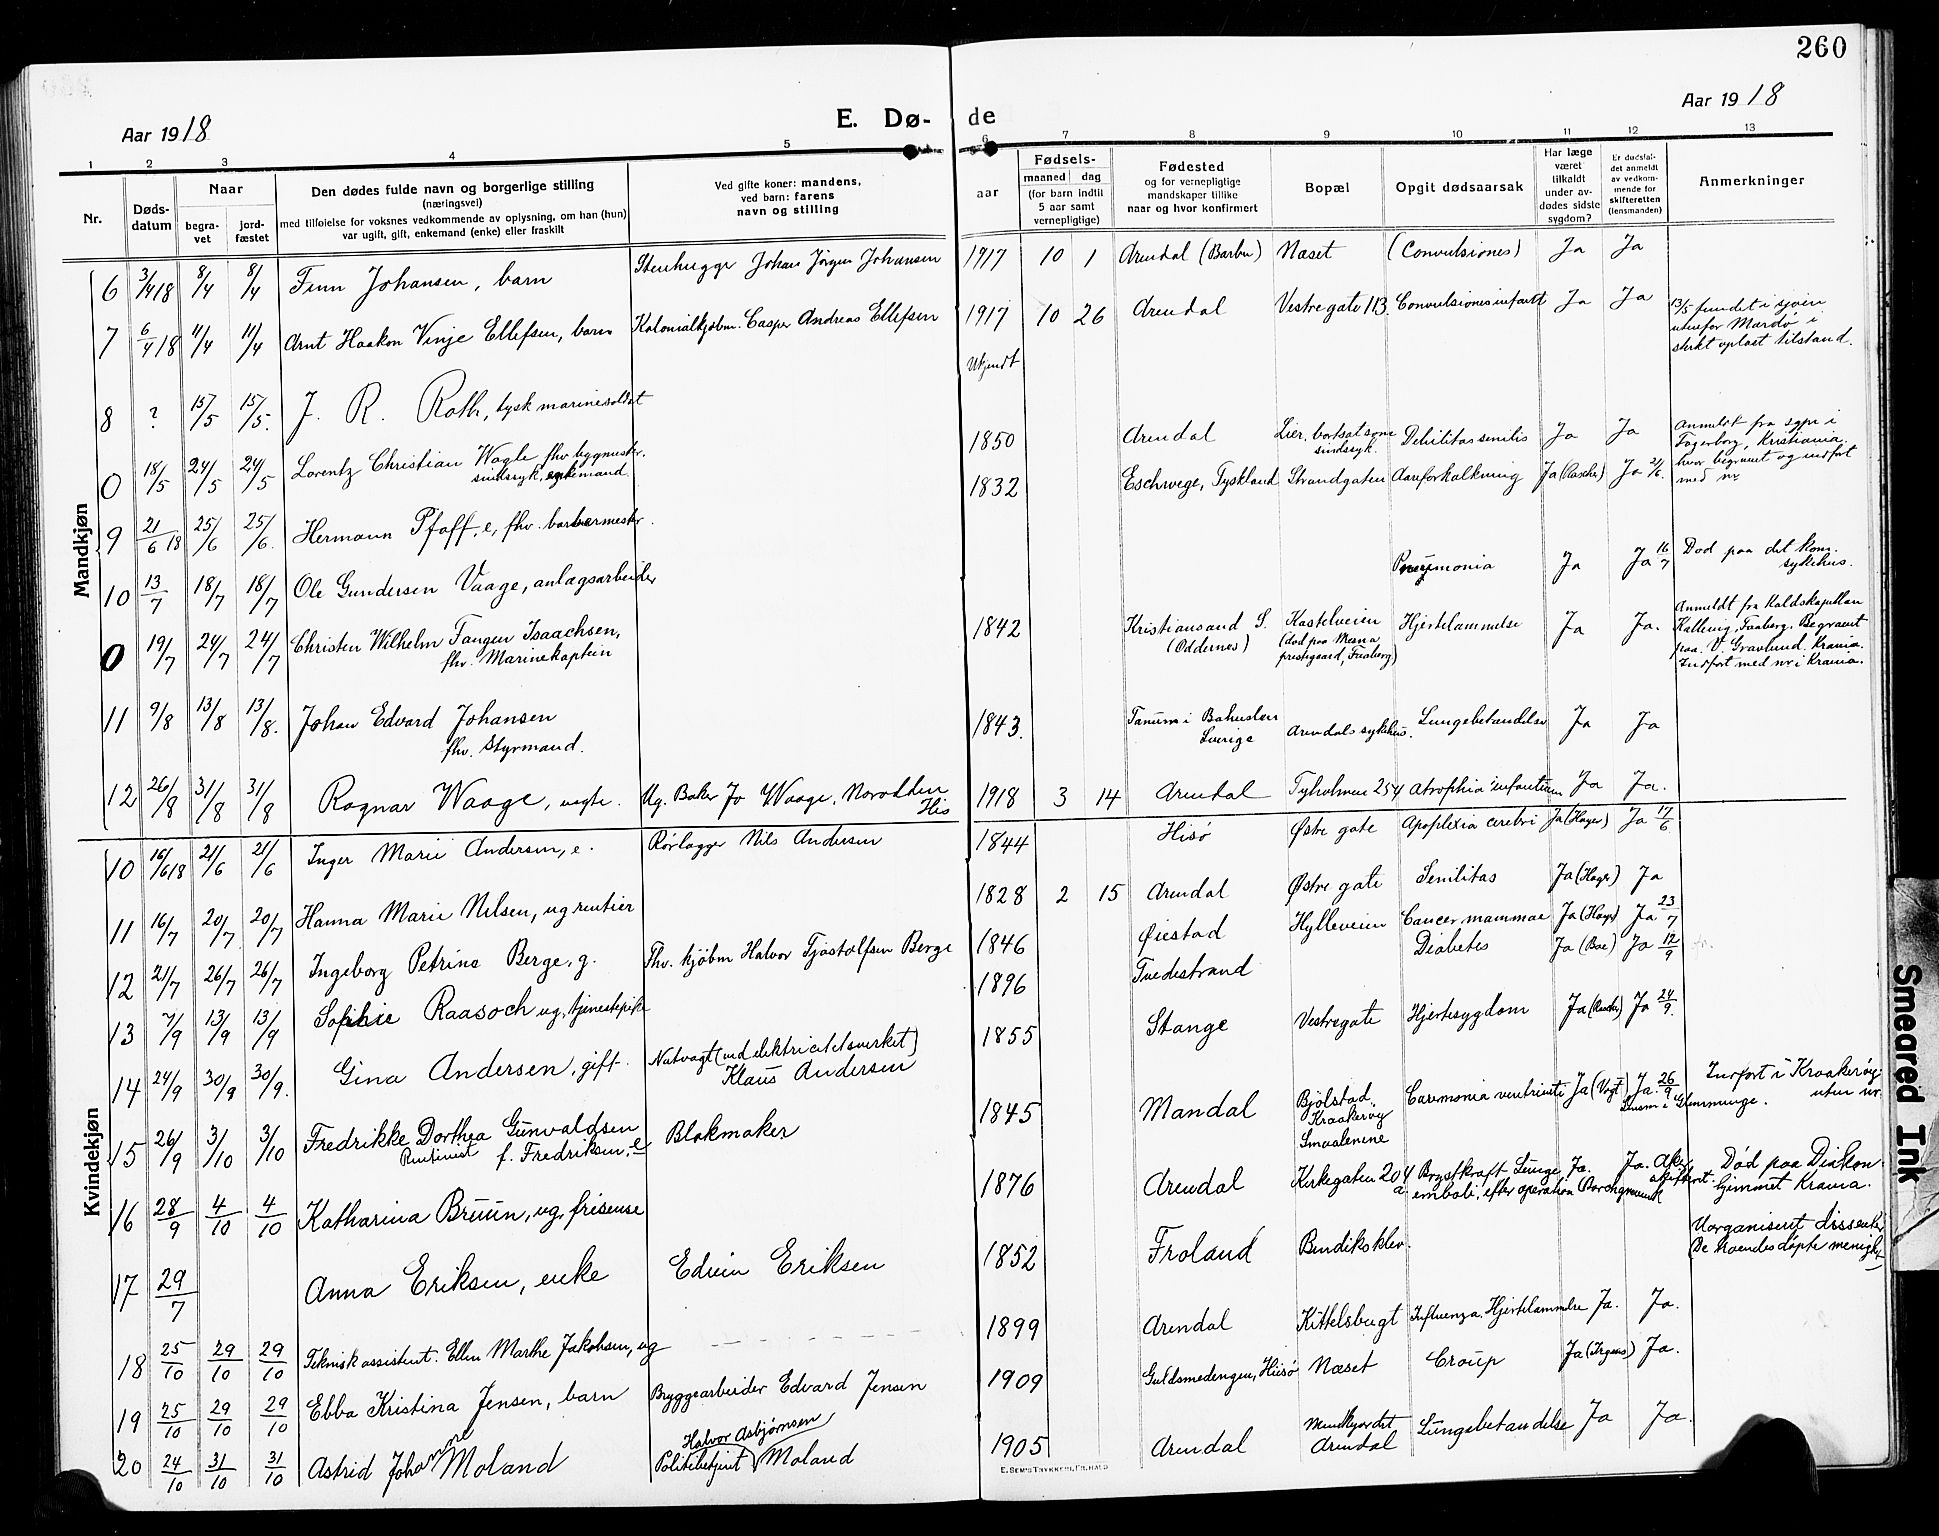 260
Aar 1918
E. Dø-
de
Aar 1918
1 2 3 4 5 6 7 8 9 10 11 12 13
Nr.
Døds-
datum
Naar
begra-
vet
jord-
fæstet
Den dødes fulde navn og borgerlige stilling
(næringsvei)
med tilføielse for voksnes vedkommende av oplysning, om han (hun)
var ugift, gift, enkemand (enke) eller fraskilt
Ved gifte koner: mandens,
ved barn: farens
navn og stilling
aar
Fødsels-
maaned dag
(for barn indtil
5 aar samt
vernepligtige)
Fødested
og for vernepligtige
mandskaper tillike
naar og hvor konfirmert
Bopæl
Opgit dødsaarsak
Har læge
været
tilkaldt
under av-
dødes sidste
sygdom?
Er dødsfal-
det anmeldt
av vedkom-
mende for
skifteretten
(lensmanden)
Anmerkninger
Mandkjøn
6 3/4 18 8/4 8/4 Finn Johansen, barn Stenhugger Johan Jørgen Johansen 1917 10 1 Arendal (Barbu) Næset (Convulsiones) Ja Ja
7 6/4 18 11/4 11/4 Arnt Haakon Vinje Ellefsen, barn Kolonialkjøbm. Casper Andreas Ellefsen 1917 10 26 Arendal Vestregate 113. Convulsiones infantt Ja Ja
8 ? 15/5 15/5. J. R. Roth, tysk marinesoldat Ukjendt 13/5 fundet i sjøen
utenfor Mardø i
sterkt opløst tilstand.
0 18/5 24/5 24/5 Lorentz Christian Wagle fhv. bygmester.
sindssyk, enkemand 1850 Arendal Lier, bortsat som
sindssyk. Debilitas senilis Ja Ja Anmeldt fra sgpr i
Fagerborg, Kristiania.
hvor begravet og indført
med nr
9 21/6 18 25/6 25/6. Hermann Pfaff, e, fhv. barbermester. 1832 Eschwege, Tyskland Strandgaten Aareforkalkning Ja Ja
10 13/7 18/7 18/7 Ole Gundersen Vaage, anlægsarbeider Pneumonia Ja Ja 16/7 Død paa det kom.
sykehus.
0 19/7 24/7 24/7 Christen Wilhelm Tangen Isaachsen,
fhv. Marinekaptein 1842 Kristiansand S.
(Oddernes) Kastelveien
(død paa Mesna
prestegaard, Faaberg) Hjertelammelse Ja Ja. Anmeldt fra
Faaberg. Begravet
paa V. Gravlund, Krania.
Indført med nr i Krania.
11 9/8 13/8 13/8. Johan Edvard Johansen
fhv. Styrmand. 1843. Tanum i Bohuslen
Sverige Arendals sykehus. Lungebetændelse Ja Ja
12 26/8 31/8 31/8 Ragnar Waage, uegte. Ug. Baker Jo Waage, Norodden
His 1918 3 14 Arendal Tyholmen 254 Atrophia infantium Ja Ja.
Kvindekjøn
10 16/6 18 21/6 21/6 Inger Marie Andersen, e. Rørlægger Nils Andersen 1844 Hisø Østre gate Apoplexia cerebri Ja (Høyer) Ja 17/6
11 16/7 20/7 20/7 Hanna Marie Nilsen, ug rentier 1828 2 15 Arendal Østre gate Senilitas Ja Ja
12 21/7 26/7 26/7 Ingeborg Petrine Berge, g. Fhv. kjøbm Halvor Tjøstolfsen Berge 1846 Øiestad Hylleveien Cancer mammae Ja Ja 23/7
13 7/9 13/9 13/9 Sophie Raasoch ug, tjenestepike 1896 Tvedestrand Diabetes Ja (Boe) Ja 12/9
14 24/9 30/9 30/9. Gina Andersen, gift. Natvagt (ved elektricitetsverket)
Klaus Andersen 1855 Stange Vestregate Hjertesygdom Ja Ja 24/9.
15 26/9 3/10 3/10 Fredrikke Dorthea Gunvaldsen
f. Fredriksen, e Blokmaker 1845 Mandal Bjølstad,
Kraakerøy
Smaalenene Ja (Vogt) Ja 26/9 Indført i Kraakerøy
uten nr.
16 28/9 4/10 4/10 Katharina Bruun, ug, frisense 1876 Arendal Kirkegaten 204
a Brystkræft Lunge
emboli, efter operation Ja. Ja. Død paa Diakon-
hjemmet Krania.
17 29/7 Anna Eriksen, enke Edvin Eriksen 1852 Froland Bendiksklev. Uorganisert dissenter
(De troendes døpte menighet)
18 25/10 29/10 29/10 Teknisk assistent. Ellen Marthe Jakobsen, ug 1899 Arendal Kittelsbugt Influenza. Hjertelammelse Ja. Ja.
19 25/10 29/10 29/10 Ebba Kristina Jensen, barn Bryggearbeider Edvard Jensen 1909 Guldsmedengen, Hisø Næset Croup Ja Ja.
20 24/10 31/10 31/10 Astrid Johanne Moland Politibetjent Halvor Asbjørnsen Moland 1905 Arendal Arendal Lungebetændelse Ja Ja.
E. SEM'S TRYKKERI, FR.HALD
Smeared Ink